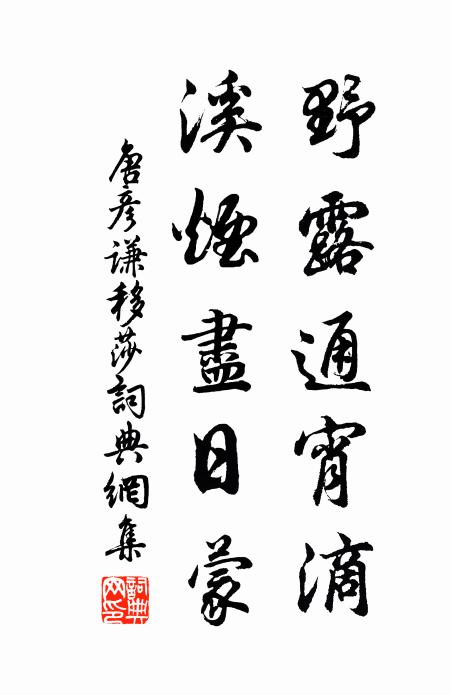 野露通宵滴
溪煙盡日蒙
唐彥謙移莎詞典網集
詞典网印